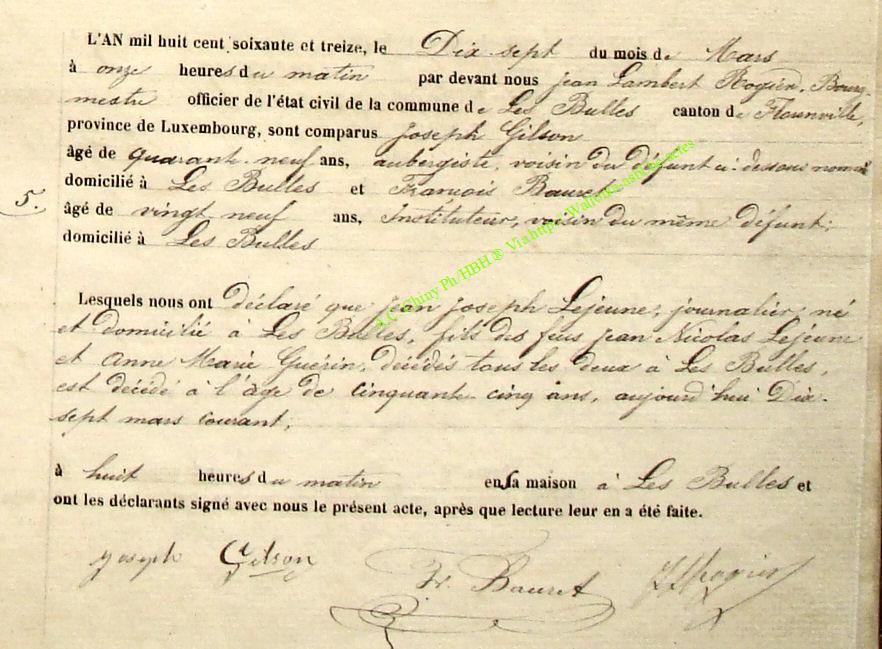 L'AN mil huit cent soixante et treize, le Dix-sept du mois de Mars
à onze heures du matin par devant nous Jean Lambert Rogier, Bourg-
mestre officier de l'état civil de la commune de Les Bulles canton de Florenville,
province de Luxembourg, sont comparus Joseph Gilson
âgé de quarante-neuf ans, aubergiste, voisin du défunt ci-dessous nommé
domicilié à Les Bulles et François Bauret
5.
âgé de vingt neuf ans, Instituteur, voisin du même défunt;
domicilié à Les Bulles
Lesquels nous ont déclaré que Jean Joseph Lejeune, journalier, né
et domicilié à Les Bulles, fils des feus Jean Nicolas Lejeune
et Anne Marie Guérin, décédés tous les deux à Les Bulles,
est décédé à l'âge de cinquante-cinq ans, aujourd'hui Dix-
sept mars courant;
à huit heures du matin en sa maison à Les Bulles et
ont les déclarants signé avec nous le présent acte, après que lecture leur en a été faite.
Joseph Gilson Fr. Bauret JLRogier